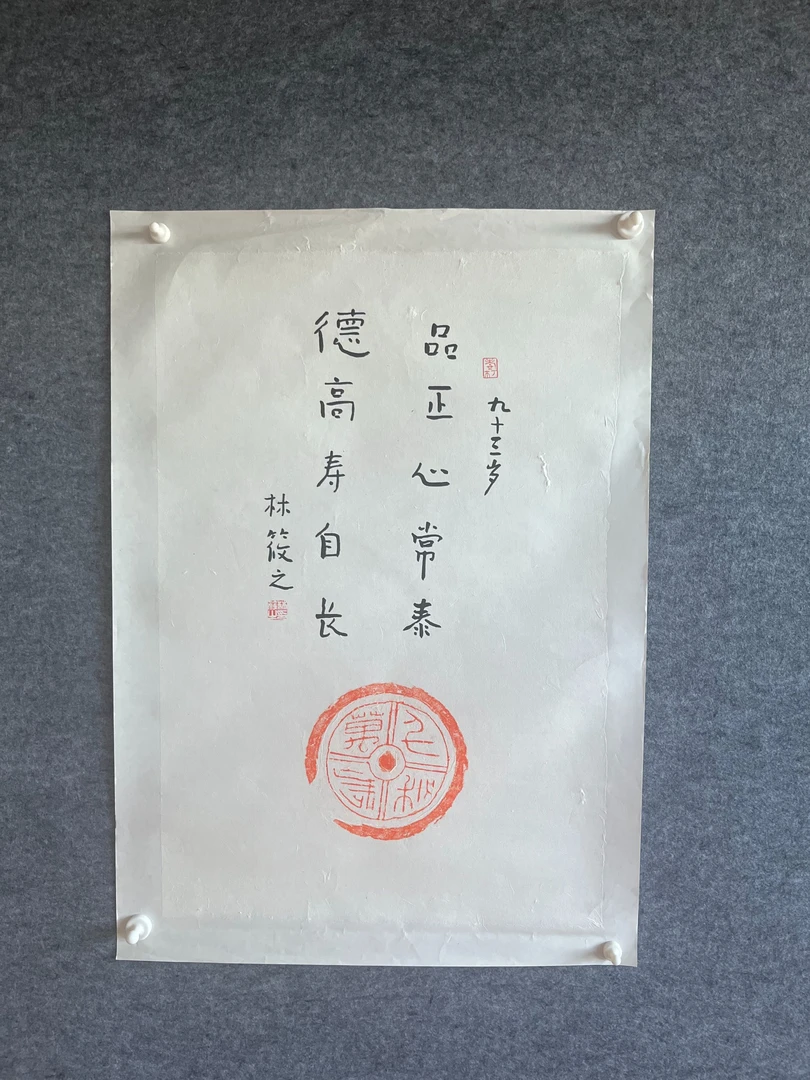 九十三岁
品正心常泰
德高寿自长
林筱之